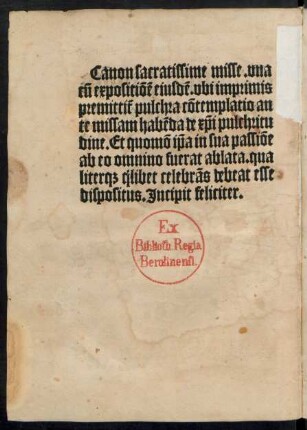 Canon sacratissime misse. vna
cū expositiōe eiusdē. vbi imprimis
premittit᷑ pulchra cōtemplatio an
te missam habēda de xp̄i pulchritu
dine. Et quomō ip̄a in sua passiōe
ab eo omnino fuerat ablata. qua
literqꝫ q̄libet celebrās debeat esse
dispositus. Incipit feliciter.
Ex
Biblioth. Regia
Berolinensi.